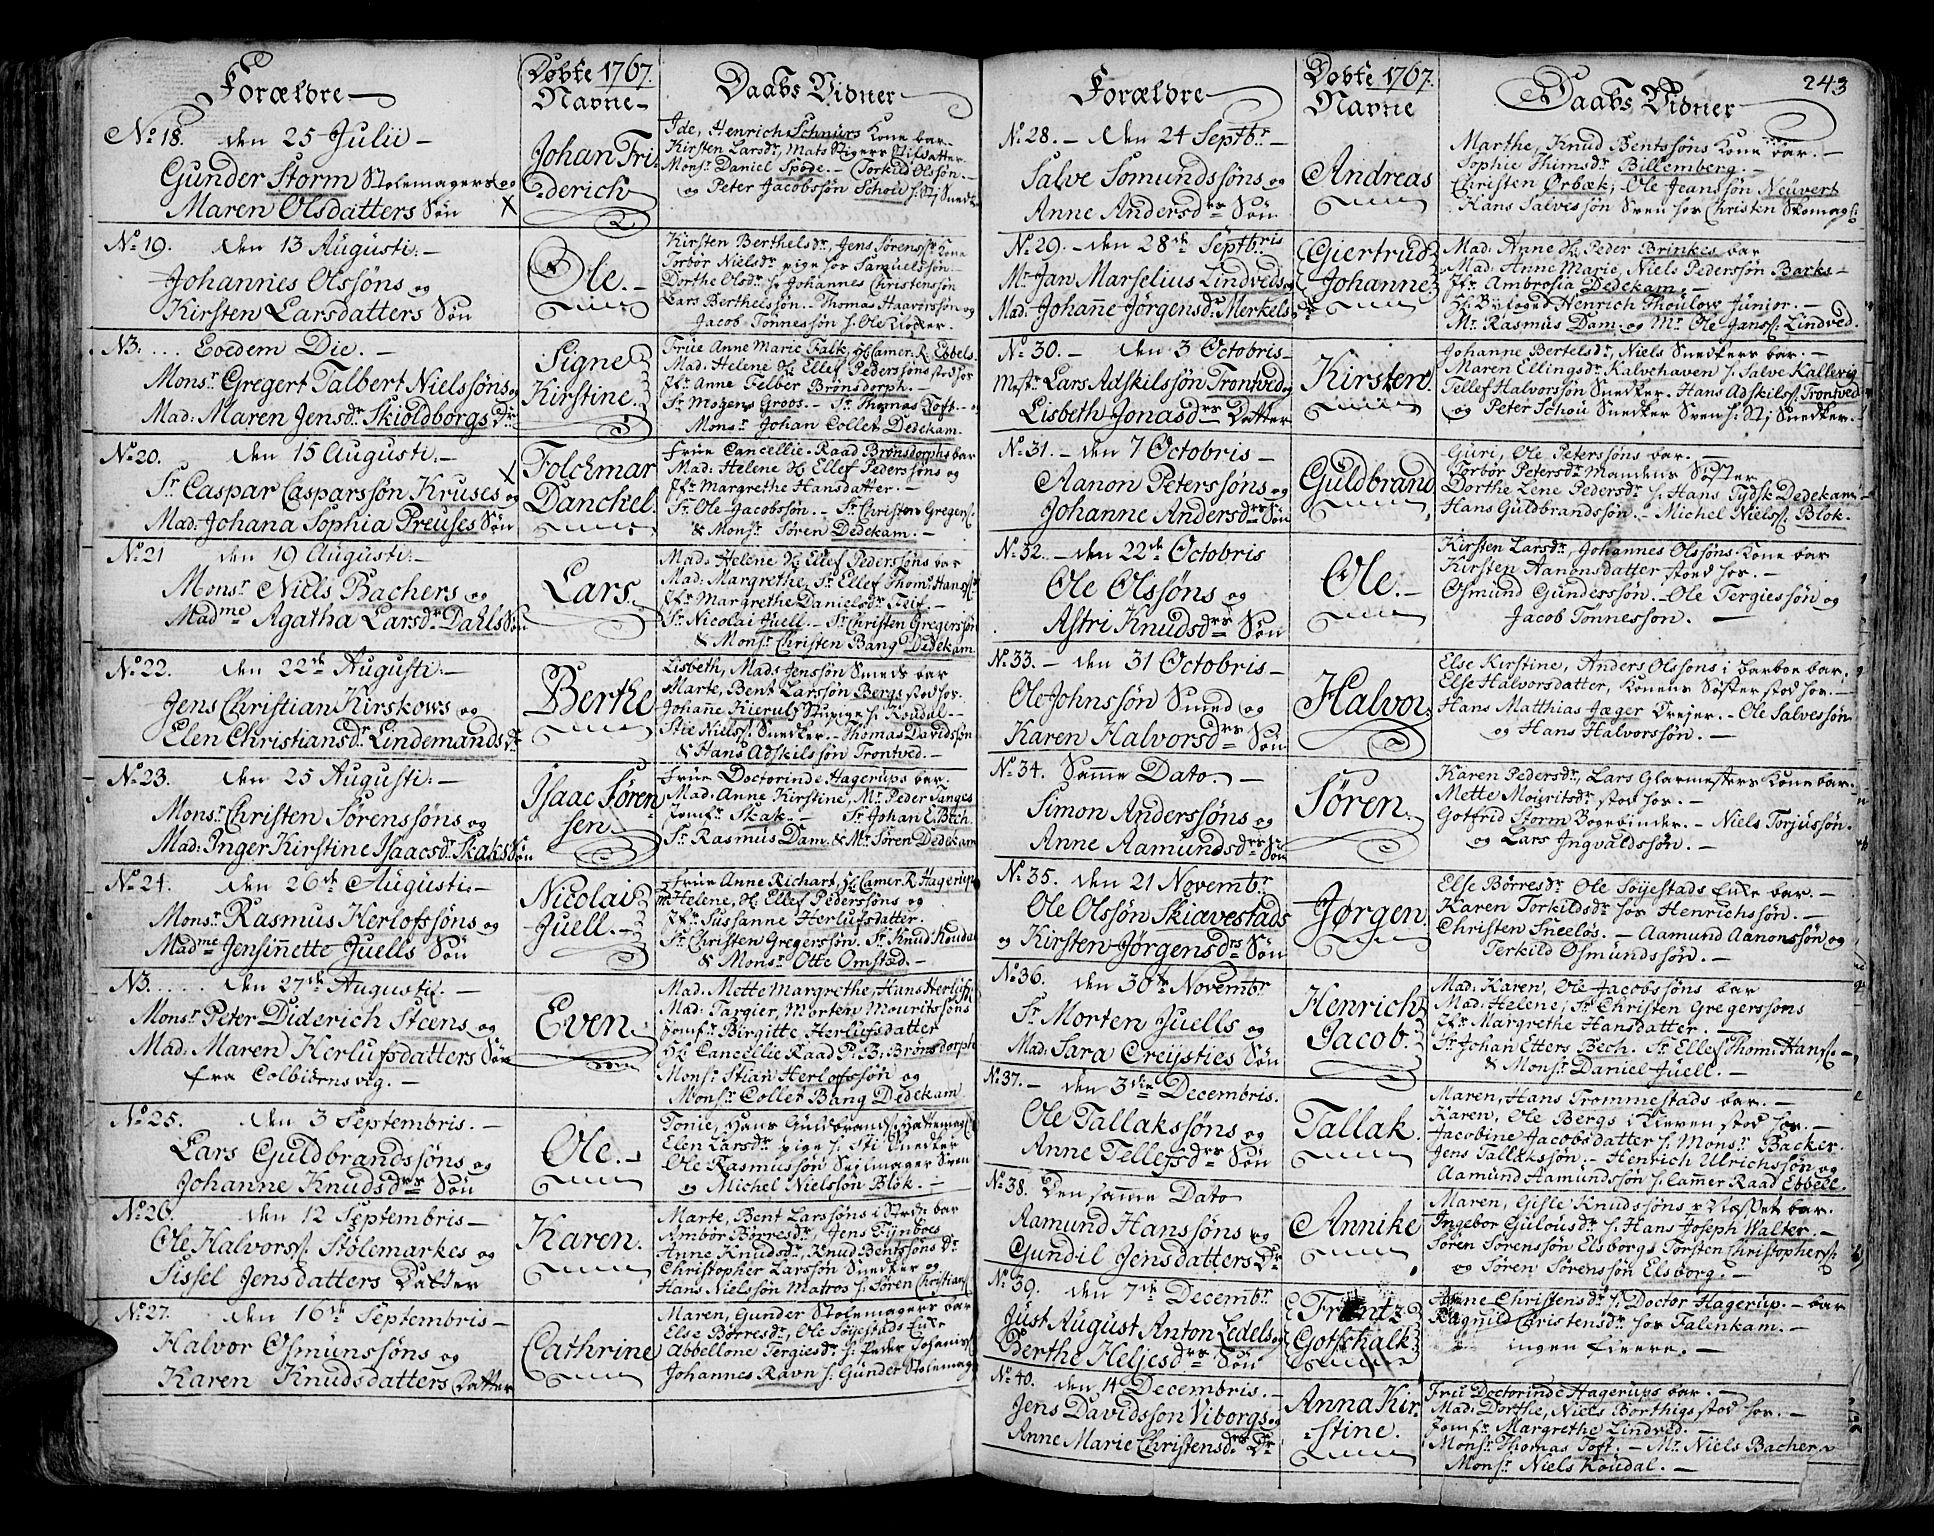 Forældre
Døbte 1767.
Navne
Daabs Vidner
No 18. den 25 Julii
Gunder Storm Stolemagers og
Maren Olsdatters Søn
Johan Fri-
derich
Ide, Henrich Schnürs Kone bar
Kirsten Larsdr, Mats Stigers Stifdatter
Monsr Daniel Spøde. Torkild Olssøn.
og Peter Jacobssøn Schou h. Stj Snedk
No 19. den 13 Augusti.
Johannies Olssøns og
Kirsten Larsdatters Søn
Ole.
Kirsten Berthelsdr, Jens Sørenss. Kone
Torbør Nielsdr pige hos Samuelssøn.
Dorthe Olsdr h. Johannes Christenssøn
Lars Berthelssøn. Thomas Haarssøn og
Jacob Tønnessøn h. Ole Kloker.
N3. .... Eoedem Die.
Monsr Gregert Talbert Nielssøns og
Mad: Maren Jensdr Skioldborgs Dr
Signe
Kirstine.
Früe Anne Marie Falk, H Camer. R. Ebbels
Mad. Helene Hr Ellef Pederssøns stod for
Jfr Anne Felber Brønsdorph.
Sr Mogens Groos. Sr Thomas Toft. og
Monsr Johan Collet Dedekam.
No 20. den 15 Augusti.
Sr Caspar Casparssøn Kruses og
Mad: Johana Sophia Preuses Søn
Folchmar
Danchel.
Früe Cancellie-Raad Brønsdorphs bar
Mad: Helene Hr Ellef Pederssøns og
Jfr Margrethe Hansdatter.
Sr Ole Jacobssøn. Sr Christen Gregerss.
& Monsr Søren Dedekam.
No 21 den 19 Augusti.
Monsr Niels Bachers og
Madme Agatha Larsdr Dahls Søn
Lars.
Mad: Helene Hr Ellef Pederssøns bar
Mad: Margrethe, Sr Ellef Thoms Hanss.
Jfr Margrethe Danielsdr Feif.
Sr Nicolai Juell. Sr Christen Gregerssøn
& Monsr Christen Bang Dedekam
No 22. den 22de Augusti.
Jens Christian Kirskows og
Elen Christiansdr Lindemands Dr
Berthe
Lisbeth, Mads Jenssøn Smeds bar
Marte, Bent Larssøn Bergs stod for.
Johanne Kierulf Stupige h. Koudal.
Stie Nielss. Snedker. Thomas Davidssøn
& Hans Adskilssøn Trontved.
No 23. den 25 Augusti.
Monsr Christen Sørenssøns og
Mad: Inger Kirstine Isaacsdr Skaks Søn
Isaac Søren-
sen
Früe Doctorinde Hagerups bar.
Mad: Anne Kirstine, Mr Peder Tanges
Jomfr Skak. Sr Johan E. Bech.
Sr Rasmus Dam. & Mr Søren Dedekam
No 24. den 26de Augusti.
Monsr Rasmus Herlofssøns og
Madme Jensinnette Juells Søn
Nicolai
Juell.
Früe Anne Richart, H Camer R. Hagerup
M. Helene, Hr Ellef Pederssøns og
Jfr Sussanne Herlufsdatter.
Sr Christen Gregerssøn. Sr Knud Koudal
& Monsr Otte Omsted.
N3. .... den 27de Augusti.
Monsr Peter Diderich Steens og
Mad: Maren Herlufsdatters Søn
fra Colbiörnsvig.
Even.
Mad. Mette Margrethe, Hans Herlufs.
Mad: Targier, Morten Mouritssøns
Jomfr Birgitte Herlufsdatter
H Cancellie Raad P. B. Brønsdorph
Monsr Stian Herlofssøn og
Monsr Collet Bang Dedekam.
No 25. den 3 Septembris.
Lars Guldbrandssøns og
Johanne Knudsdrs Søn
Ole.
Tonie, Hans Guldbrandss. Hattemag.
Elen Larsdr pige h. Sti Snedker
Ole Rasmussøn Sejlmager Sven
og Michel Nielssøn Blok.
No 26. den 12 Septembris
Ole Halvorss. Stølemarkes og
Sissel Jensdatters Datter
Karen.
Marte, Bent Larssøns i Strøe bar
Ambør Børresdr, Jens Fynboes
Anne Knudsdr, Knud Bentssøns Dr
Christopher Larssøn Snedker og
Hans Nielssøn Matros h. Søren Christians.
No 27. den 16de Septembris
Halvor Osmunssøns og
Karen Knudsdatters Datter
Cathrine
Maren, Gunder Stolemagers bar
Else Børresdr, Ole Søyestads Enke
Abbellone Tergiesdr h. Peder Johanss.
Johannes Ravn h. Gunder Stolemag.
243
Forældre
Døbte 1767.
Navne
Daabs Vidner
No 28. den 24 Septbr
Salve Somundssøns og
Anne Andersdrs Søn
Andreas
Marthe, Knud Bentssøns Kone bar.
Sophie Thimsdr Billemberg.
Christen Ørbæk, Ole Jeanssøn Neüvert
Hans Salvessøn Sven hos Christen Skomag.
No 29. den 28de Septbris
Mr Jan Marselius Lindveds og
Mad: Johanne Jørgensdr Merkels
Giertrud
Johanne
Mad: Anne Hr Peder Brinkes bar
Mad: Anne Marie, Niels Pederssøn Barks
Jfr Ambrosia Dedekam.
H Byfoged Henrich Thoulow Junior.
Mr Rasmus Dam. og Mr Ole Janss. Lindved.
No 30. den 3 Octobris
Mestr Lars Adskilssøn Trontved og
Lisbeth Jonasdrs Datter
Kirsten.
Johanne Bertelsdr, Niels Snedkers bar.
Maren Ellingsdr Kalvehaven h. Salve Kallevig
Tellef Halvorssøn Snedker. Hans Adskilss. Trontved
og Peter Schou Snedker Sven h. Stj Snedker.
No 31. den 7 Octobris
Aanon Peterssøns og
Johanne Andersdrs Søn
Guldbrand
Guri, Ole Peterssøns bar.
Torbør Petersdr Mandens Søster
Dorthe Lene Pedersdr h. Hans Tydsk Dedekam
Hans Guldbrandssøn. Michel Nielss. Blok.
No 32. den 22de Octobris
Ole Olssøns og
Astri Knudsdrs Søn
Ole.
Kirsten Larsdr, Johannes Olssøns Kone bar
Kirsten Aanonsdatter stod for.
Osmund Gunderssøn. Ole Tergiessøn og
Jacob Tønnessøn.
No 33. den 31 Octobris
Ole Johnssøn Smed og
Karen Halvorsdrs Søn
Halvor.
Else Kirstine, Anders Olssøns i Barboe bar.
Else Halvorsdatter, Konens Søster stod for.
Hans Matthias Jæger Drejer. Ole Salvessøn
og Hans Halvorssøn.
No 34. Samme Dato.
Simon Anderssøns og
Anne Aamundsdrs Søn
Søren.
Karen Pedersdr, Lars Glarmesters Kone bar.
Mette Mouritsdr stod for.
Gotfrid Storm Bogebinder. Niels Torjussøn.
og Lars Ingvaldssøn.
No 35. den 21 Novembr
Ole Olssøn Skiavestads
og Kirsten Jørgensdrs Søn
Jørgen.
Else Børresdr Ole Søyestads Enke bar.
Karen Torkildsdr hos Henrichssøn.
Christen Sneeløs. Aamund Aanonssøn og
Terkild Osmundssøn.
No 36. den 30te Novembr
Sr Morten Juells og
Mad: Sara Creysties Søn
Henrich
Jacob.
Mad. Karen, Ole Jacobssøns bar
Mad: Helene, Sr Christen Gregerssøns
Jfr Margrethe Hansdatter.
Sr Johan Etters Bech. Sr Ellef Thom. Hanss.
& Monsr Daniel Juell.
No 37. den 3die Decembris.
Ole Tallakssøns og
Anne Tellefsdrs Søn
Tallak.
Maren, Hans Trommestads bar.
Karen, Ole Bergs i Kleven stod for.
Jacobine Jacobsdatter h. Monsr Backer.
Jens Tallakssøn. Henrich Ulrichssøn og
Aamund Aamundssøn h. Camer Raad Ebbell.
No 38. Den samme Dato
Aamund Hanssøns og
Gundil Jensdatters Dr
Annike
Maren, Gisle Knudssøns bar.
Ingebor Gulousdr h. Hans Joseph Walter.
Søren Sørenssøn Elsborgs Torsten Christopherss.
og Søren Sørenssøn Elsborg.
No 39. den 7de Decembr
Just August Anton Ledels og
Berthe Heljesdrs Søn
Frantz
Gotschalk
Anne Christensdr h. Doctor Hagerup. bar
Ragnild Christensdr hos Falenkam.
ingen fleere.
No 40. den 14 Decembris.
Jens Davidssøn Viborgs og
Anne Marie Christensdrs Dr
Anna Kir-
stine.
Frü Doctorinde Hagerups bar.
Mad: Dorthe, Niels Borthigs stod for.
Jomfr Margrethe Lindved.
Monsr Thomas Toft. Mr Niels Bacher
Monsr Niels Koudal.